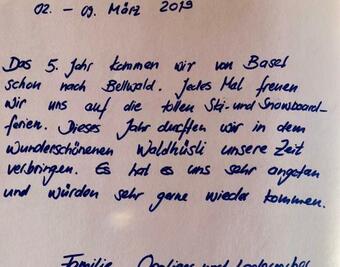 02. - 09. März 2019
Das 5. Jahr kommen wir von Basel
schon nach Bellwald. Jedes Mal freuen
wir uns auf die tollen Ski- und Snowboard-
ferien. Dieses Jahr durften wir in dem
wunderschönenen Waldhüsli unsere Zeit
verbringen. Es hat es uns sehr angetan
und würden sehr gerne wieder kommen.
Familie